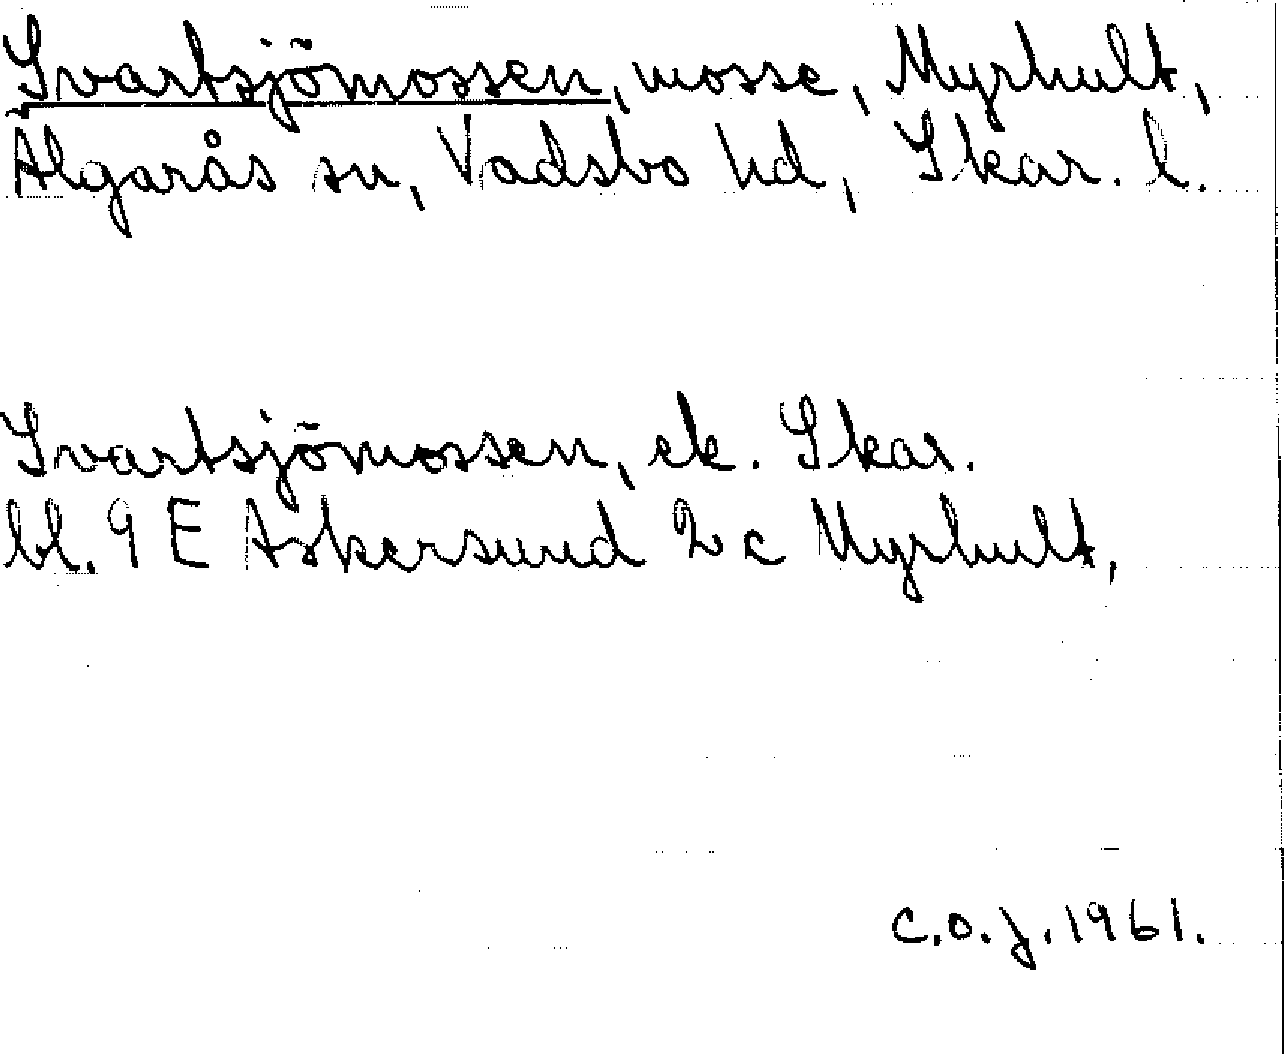 Svartsjömossen, mosse, Myrhult,
Älgarås sn, Vadsbo hd, Skar. l.
Svartsjömossen, ek. Skar.
bl. 9 E Askersund 2 c Myrhult,
C.O.J. 1961.